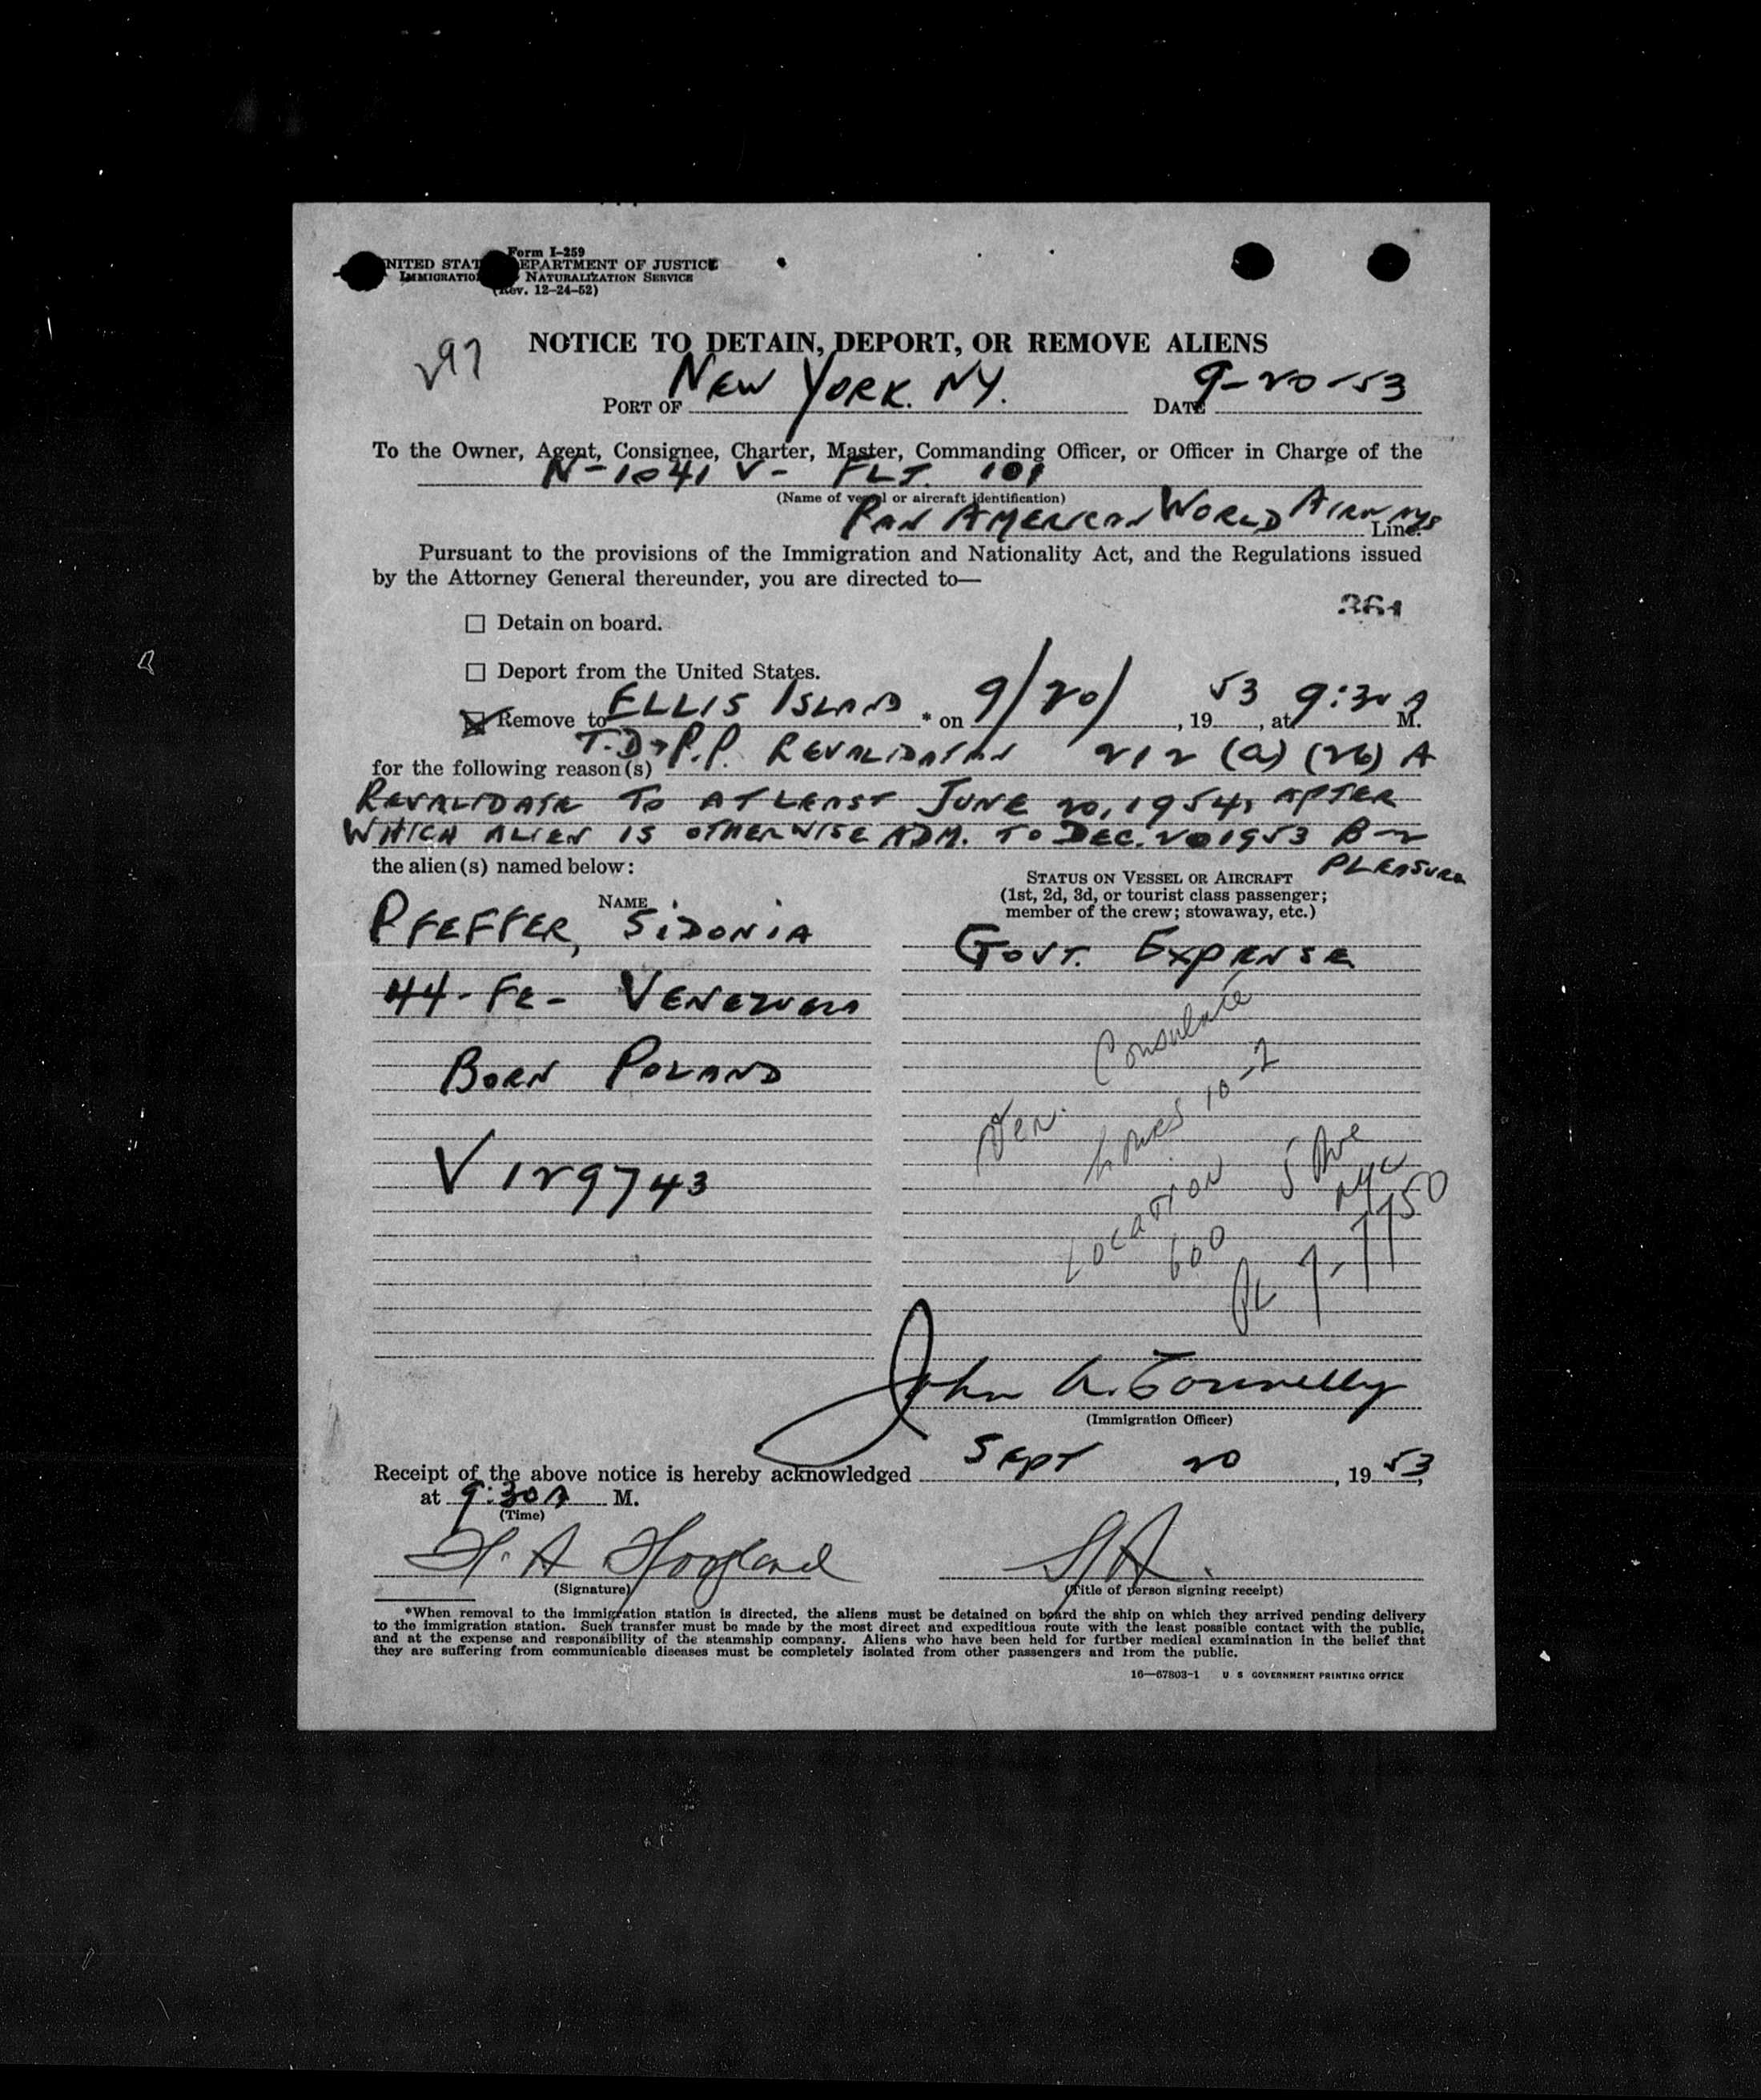 Form I-259
UNITED STATES DEPARTMENT OF JUSTICE
IMMIGRATION NATURALIZATION SERVICE
(Rev. 12-24-52)
297
NOTICE TO DETAIN, DEPORT, OR REMOVE ALIENS
PORT OF NEW YORK. NY. DATE 9-20-53
To the Owner, Agent, Consignee, Charter, Master, Commanding Officer, or Officer in Charge of the
N-1041 V- FLT. 101
(Name of vessel or aircraft identification)
PAN AMERICAN WORLD AIRWAYS Line.
Pursuant to the provisions of the Immigration and Nationality Act, and the Regulations issued
by the Attorney General thereunder, you are directed to—
361
Detain on board.
Deport from the United States.
Remove to ELLIS ISLAND * on 9/20/, 1953, at 9:30 A M.
for the following reason(s) T.D. P.P. REVALIDATION 212 (a) (26) A
REVALIDATE TO AT LEAST JUNE 20, 1954, AFTER
WHICH ALIEN IS OTHERWISE ADM. TO DEC. 20 1953 B-2
PLEASURE
the alien(s) named below:
STATUS ON VESSEL OR AIRCRAFT
(1st, 2d, 3d, or tourist class passenger;
member of the crew; stowaway, etc.)
NAME
PFEFFER, SIDONIA
GOVT. EXPENSE
44-FE- VENEZUELA
BORN POLAND
V 129743
Ven. Consulate
hours 10-2
Location
600 5 Ave
NYC
PL 7-7750
John A. Connelly
(Immigration Officer)
Receipt of the above notice is hereby acknowledged Sept 20, 1953,
at 9:30A M.
(Time)
H. A. Hogland
(Signature)
(Title of person signing receipt)
*When removal to the immigration station is directed, the aliens must be detained on board the ship on which they arrived pending delivery
to the immigration station. Such transfer must be made by the most direct and expeditious route with the least possible contact with the public,
and at the expense and responsibility of the steamship company. Aliens who have been held for further medical examination in the belief that
they are suffering from communicable diseases must be completely isolated from other passengers and from the public.
16—67803-1 U S GOVERNMENT PRINTING OFFICE